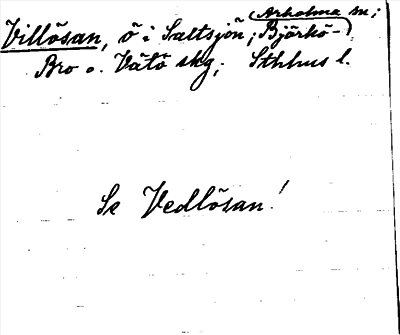 Arholma sn;
Villösan, ö i Saltsjön; Björkö-
Bro o. Vätö skg; Sthlms l.
Se Vedlösan!